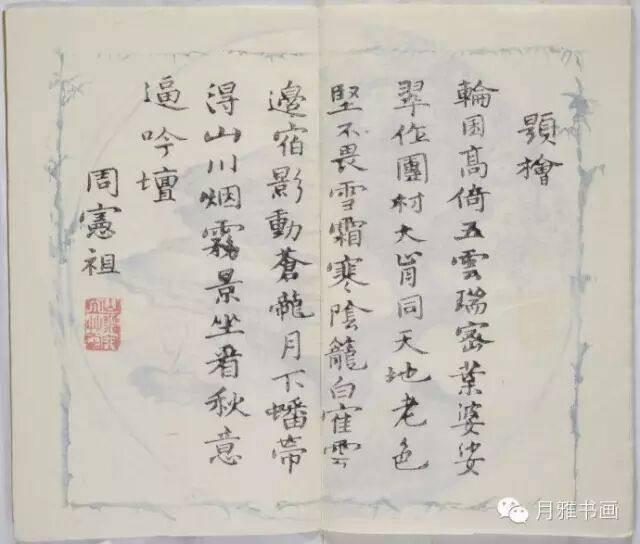 題檜
輪囷高倚五雲端密葉婆娑
翠作團材大肯同天地老色
堅不畏雪霜寒陰籠白寉雲
邊宿影動蒼龍月下蟠帶
得山川烟霧景坐看秋意
逼吟壇
周憲祖
月雅书画